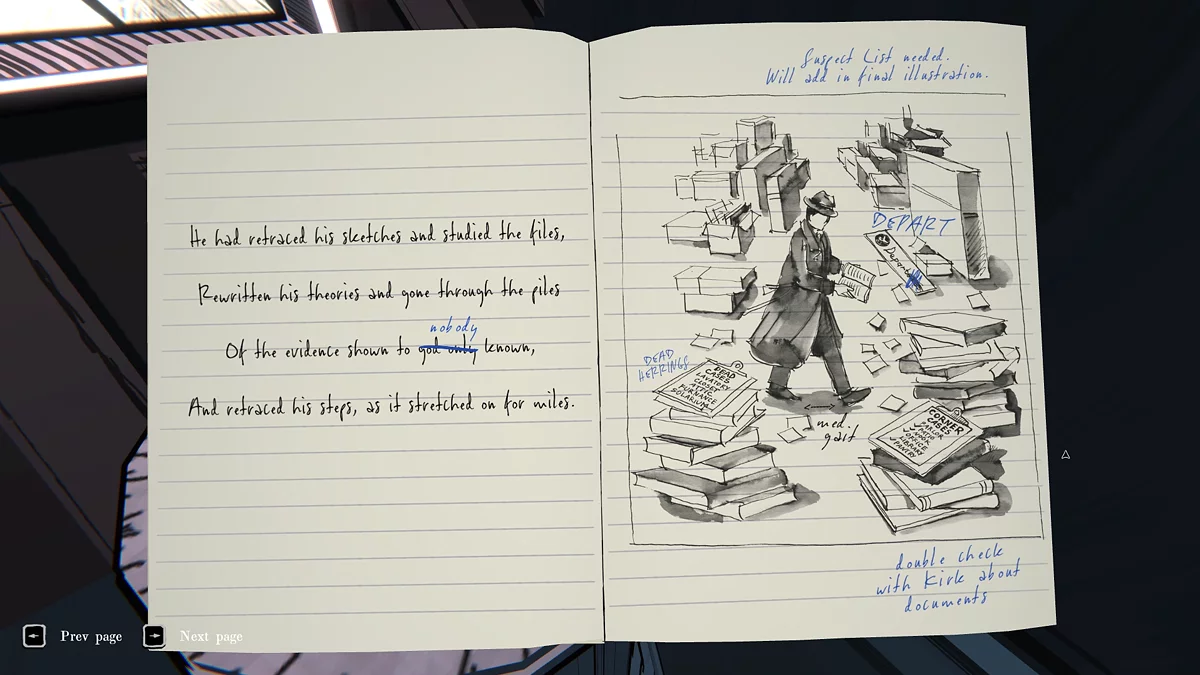 He had retraced his sketches and studied the files,
Rewritten his theories and gone through the piles
nobody
Of the evidence shown to god only known,
And retraced his steps, as it stretched on for miles.
Suspect List needed.
Will add in final illustration.
DEPART
DEAD
HERRINGS
DEAD
CASES
LAVATORY
CLOSET
FURNANCE
SOLARIUM
med.
gait
CORNER
CASES
PARLOR
NOOK
OFFICE
LIBRARY
PANTRY
double check
with Kirk about
documents
Prev page
Next page